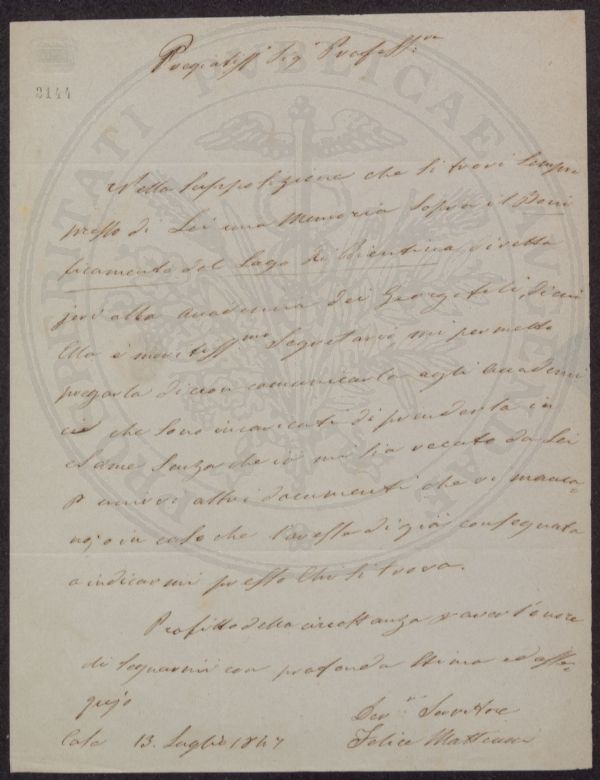 Pregiatiss.o Sig.r Professore
2144
Nella supposizione che si trovi sempre
presso di Lei una Memoria sopra il Boni
ficamento del Lago di Bientina diretta
jeri alla Accademia dei Georgofili di cui
Ella è meritiss.mo Segretario, mi permetto
pregarla di non comunicarla agli Accademi
ci che sono incaricati di prenderla in
esame senza che io mi sia recato da Lei
p unirvi altri documenti che vi manca=
no, o in caso che l'avesse di già consegnata
a indicarmi presso chi si trova.
Profitto della circostanza p aver l'onore
di segnarmi con profonda stima ed osse=
quio
Dev.mo Servitore
Casa 13. Luglio 1847
Felice Matteucci
PROSPERITATI PUBLICAE AUGENDAE